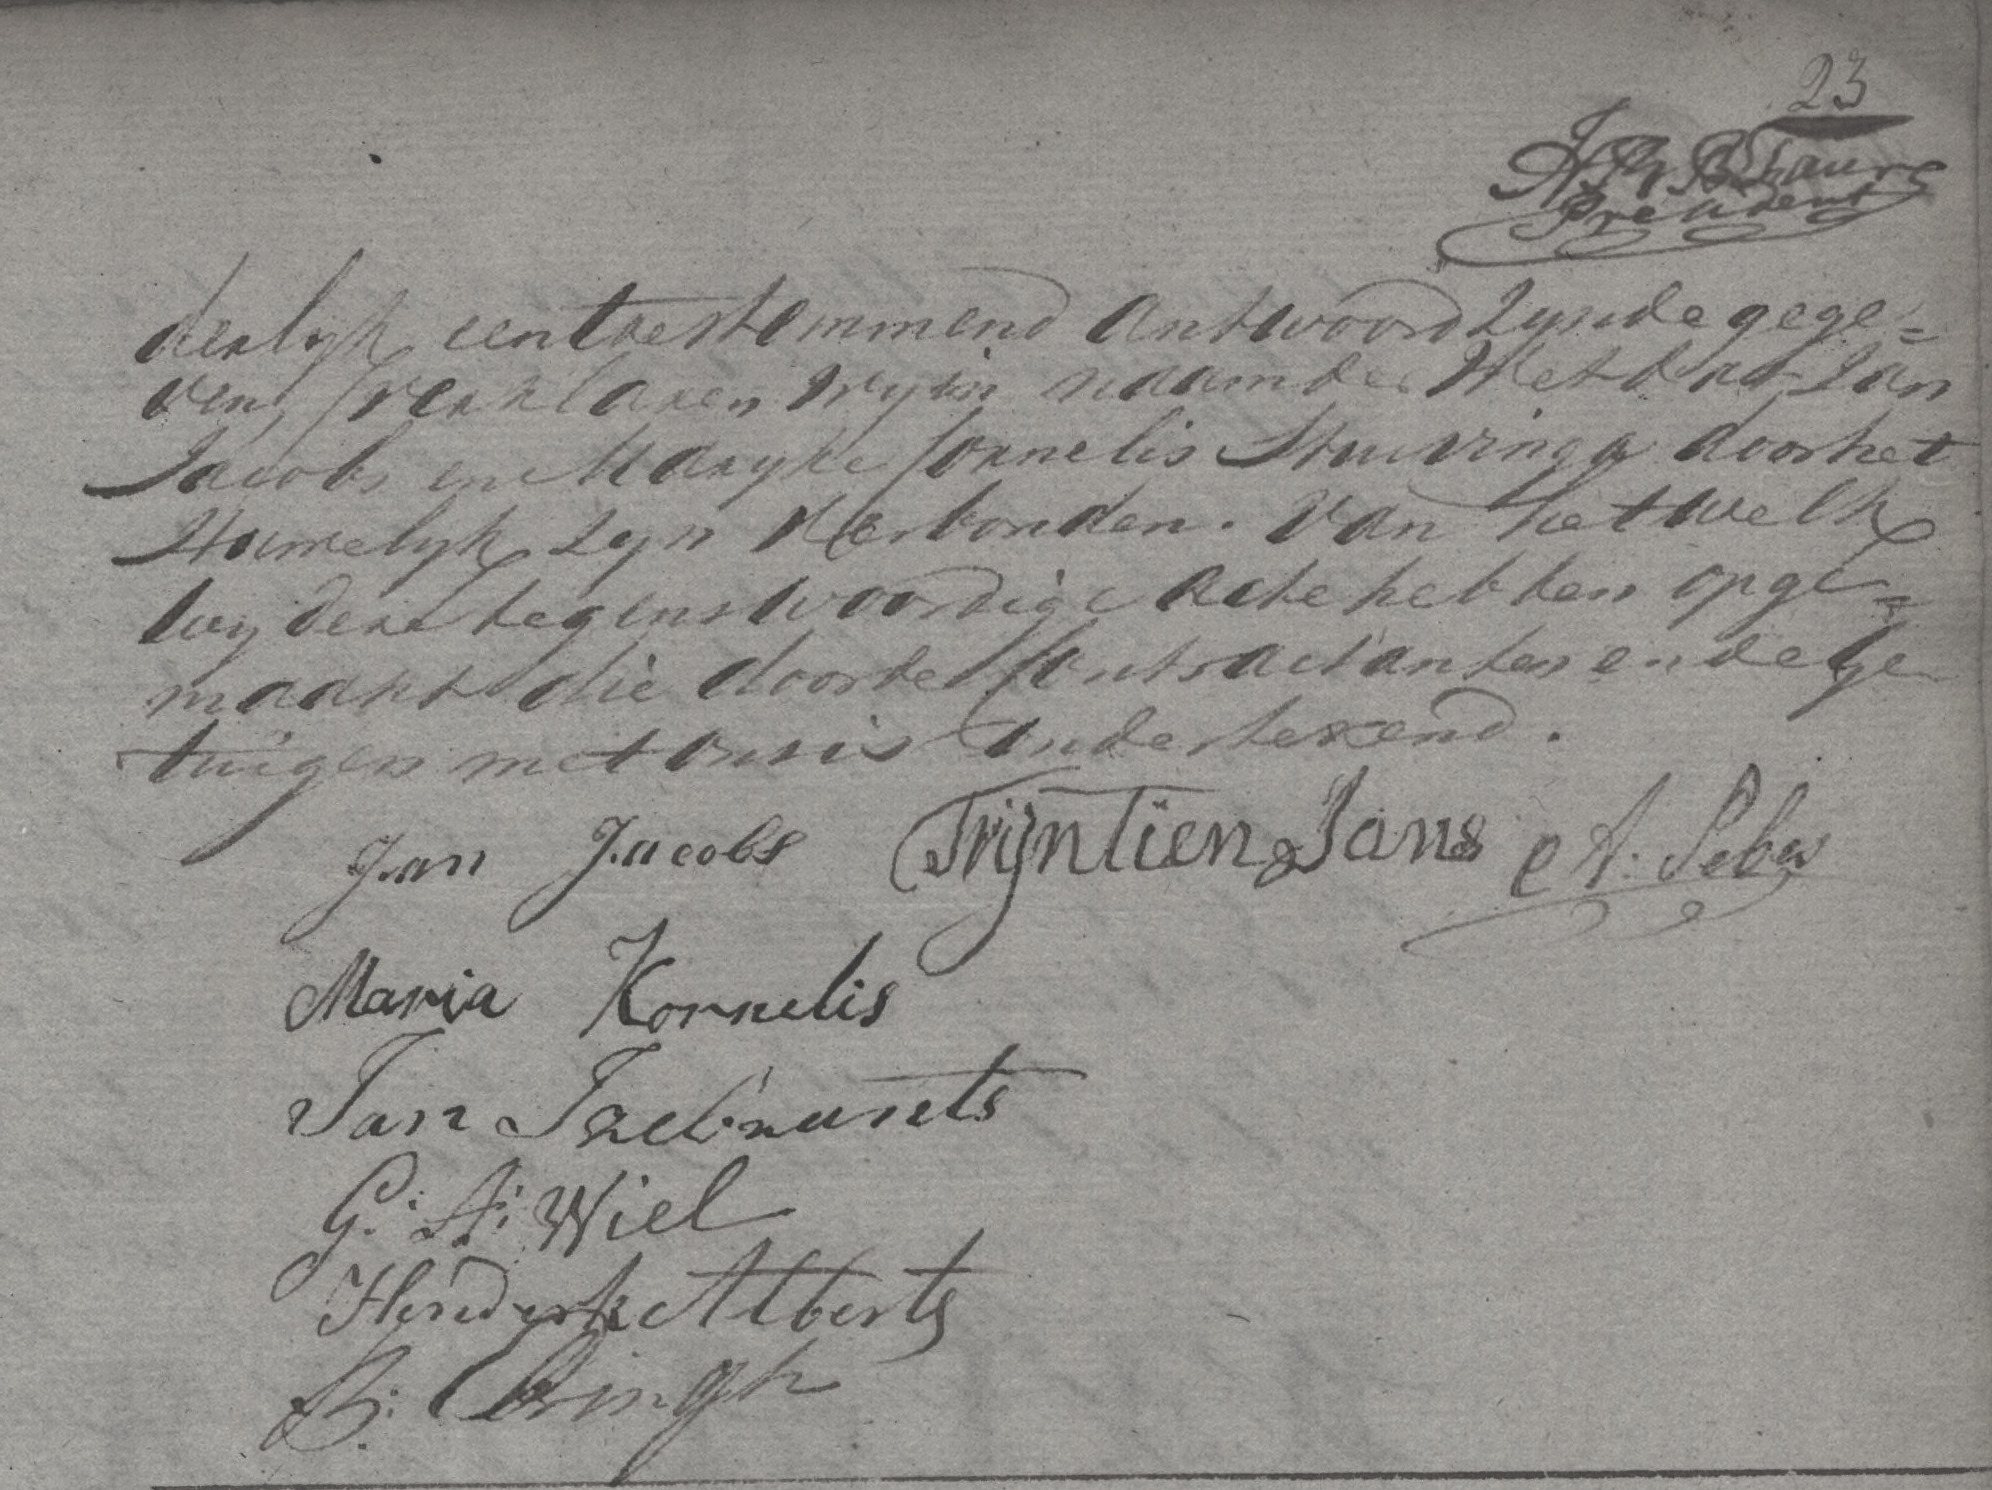 23
President
derlyk een toestemmend antwoord zynde gege=
ven, verklaren wy in naam der Wet dat Jan
Jacobs en Maryke Cornelis Stuivinga door het
Huwelyk zyn verbonden. Van het welk
wy deze tegenswoordige acte hebben opge=
maakt die door de Contractanten en de ge
tuigen met ons is onderteekend.
Jan Jacobs Trijntien Jans A: Sebes
Maria Kornelis
Jan
G: A: Wiel
Henderk Alberts
B: